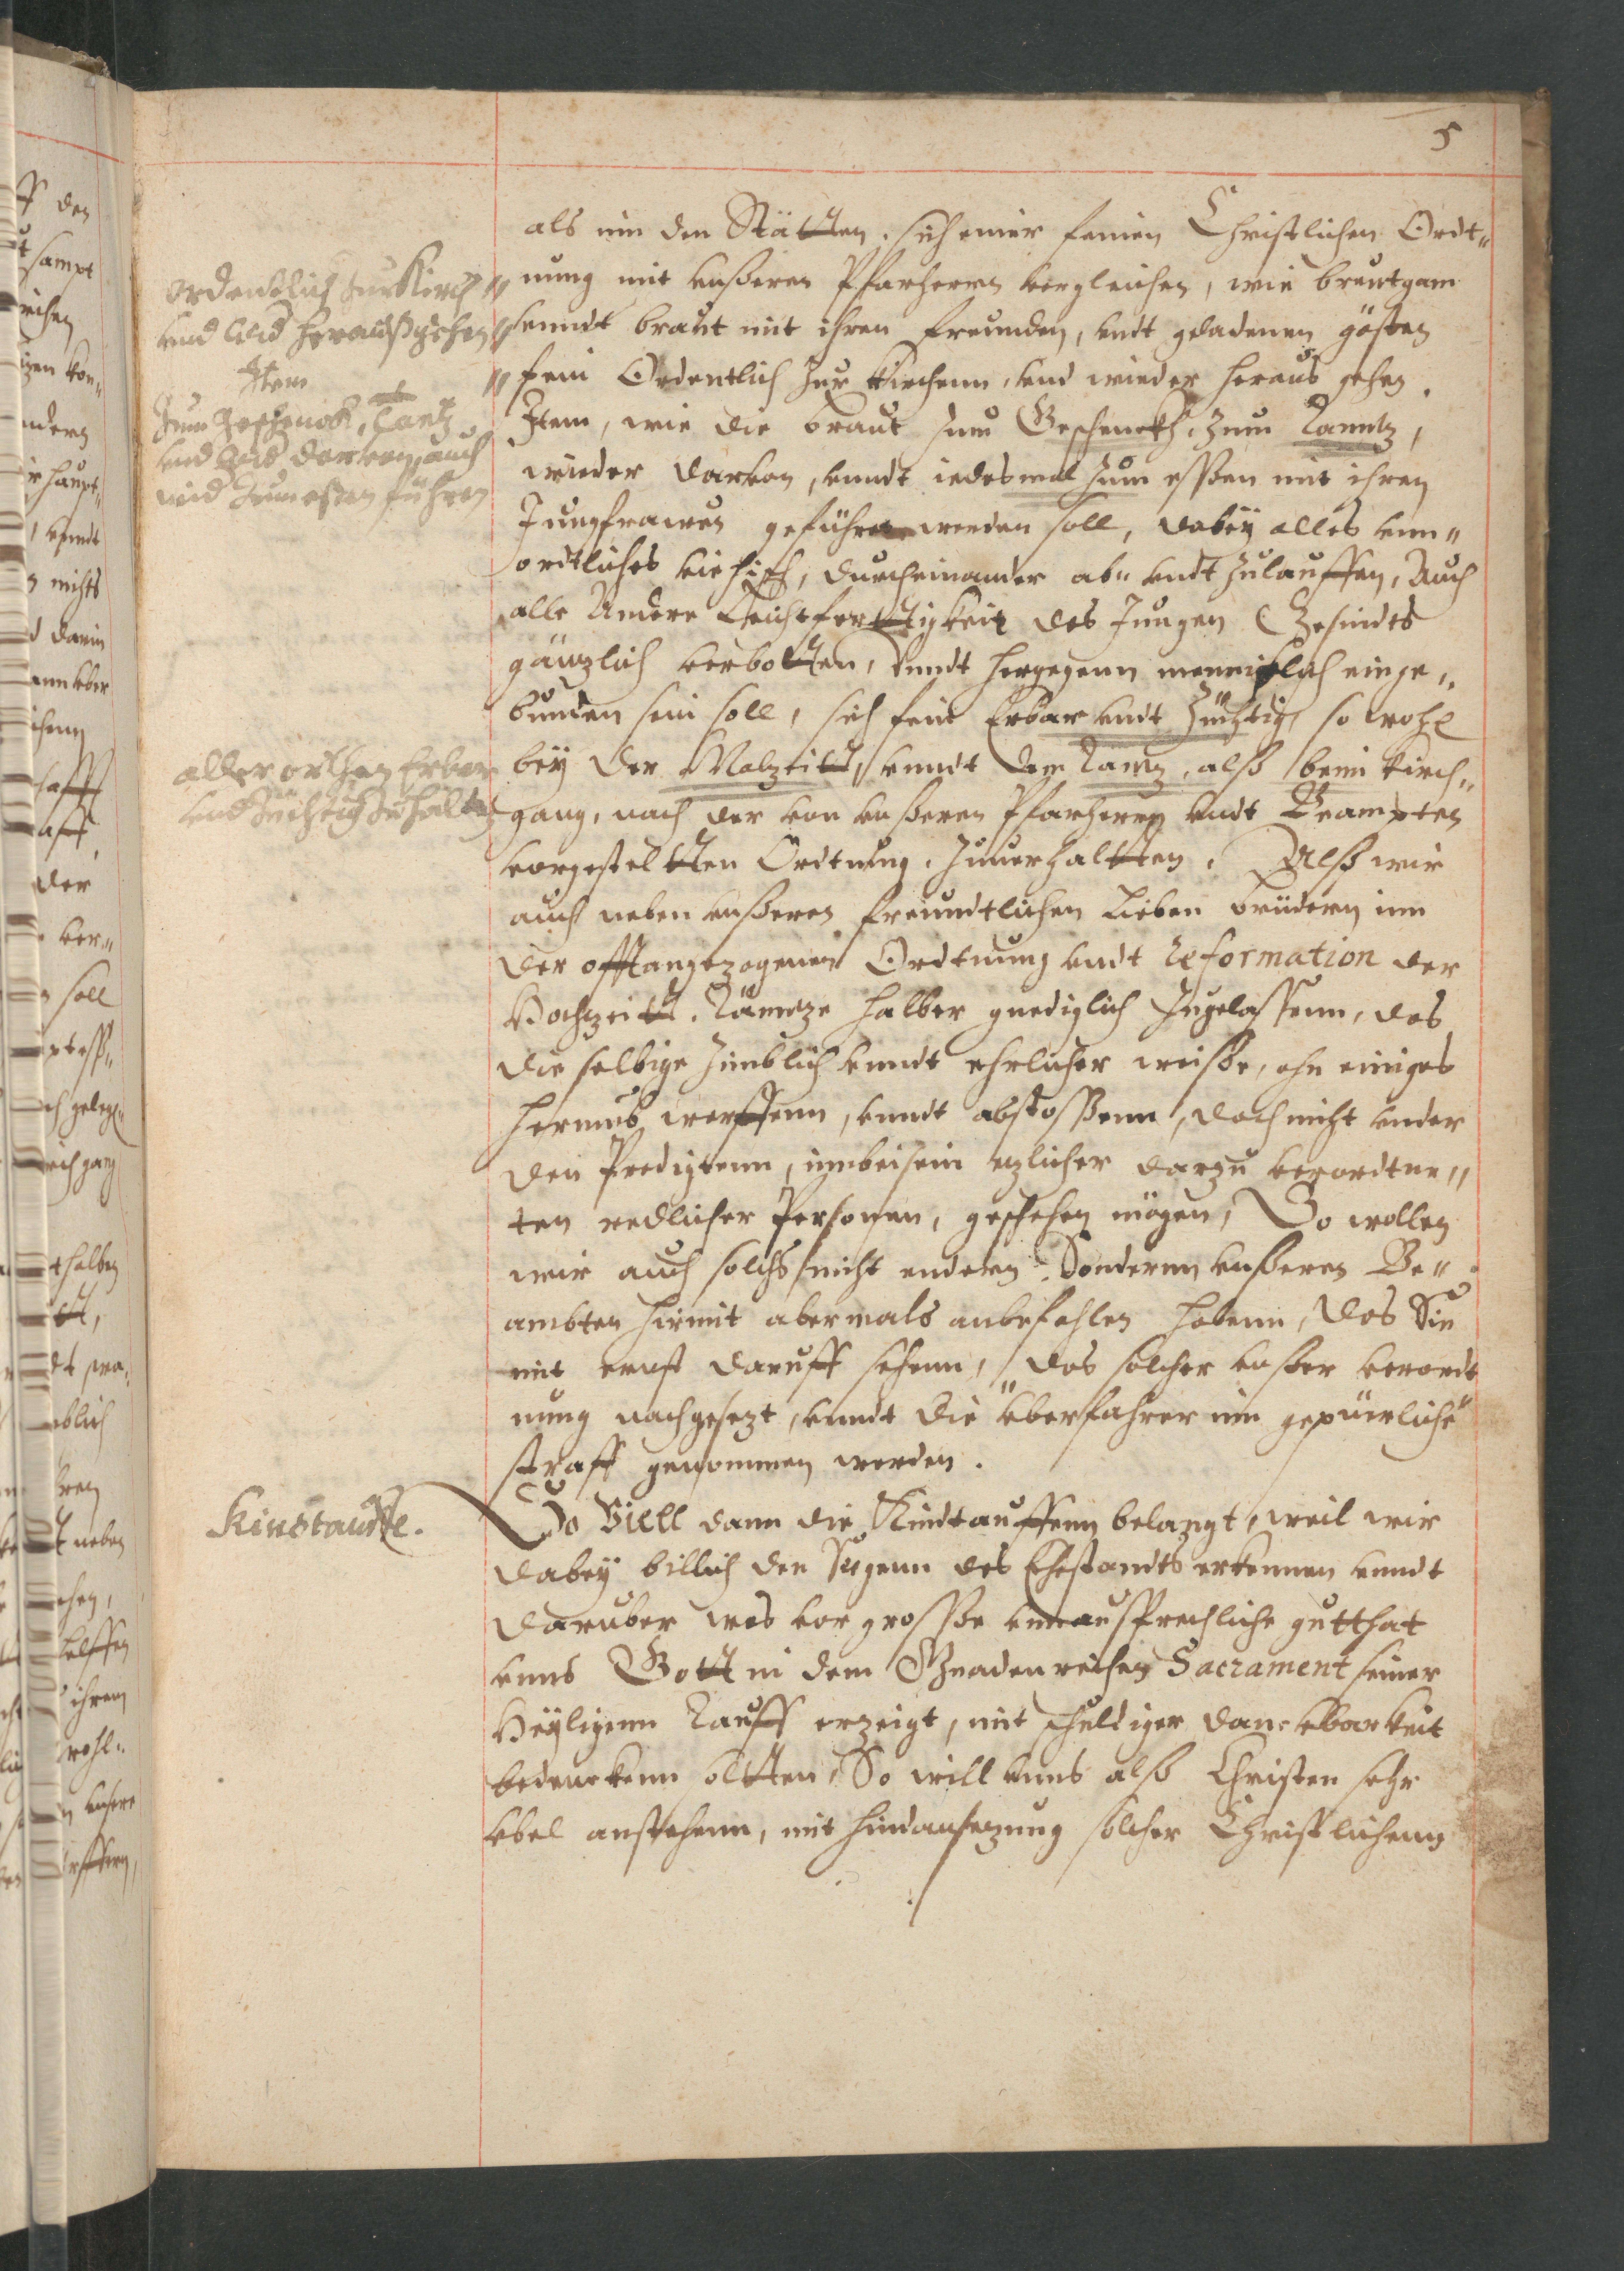 5
als inn den Stätten, sich einer feinen Christlichen Ordt„
nung mit vnßeren Pfarherrn vergleichen, wie breutgam
vnndt braut mit ihren freunden, vndt geladenen gästen
fein Ordentlich Zur Kirchenn, vnd wieder heraus gehen.
Item, wie die braut zum Geschenckh, zum Tanntz,
wieder darvon, vnndt iedesmal zum essen mit ihren
Jungfrawen geführet werden soll, dabey alles vnn„
ordtliches viehisch, durcheinander ab„ vndt Zulauffen, Auch
alle Andere Leichtferttigkeit des Jungen Gesindts
gänzlich verbotten, vnndt hergegenn menniglich einge„
bunden sein soll, sich fein Erbar vndt Züchtig, so wohl
bey der Malzeitt, vnndt dem Tantz, alß beim Kirch„
gang, nach der von vnßeren Pfarherrn vndt Beampten
vorgesteltten Ordtnung, Zuuerhaltten. Alß wir
auch neben vnßeren freundtlichen Lieben brüdern inn
der offtangezogenen Ordtnung vndt reformation der
Hochzeitt, Täntze halber gnediglich Zugelassenn, das
die selbige Zimblich vnndt ehrlicher weiße, ohn einiges
herumb werffenn, vnndt abstoßenn, doch nicht vnder
den Predigtenn, innbeisein etzlicher darzu verordtne„
ten redlicher Personen, geschehen mögen, So wollen
wir auch solchs nicht endern, Sondernn vnßeren Be„
ambten hirmit abermals anbefohlen habenn, das Sie
mit ernst daruff sehenn, das solcher vnßer verordt
nung nachgesezt, vnndt die vberfahrer inn gepüerliche
straff genommen werden.
So Viell dann die Kindtauffenn belangt, weil wir
dabey billich den Segenn des Ehestandts erkennen vnndt
daruber was vor große vnnaußsprechliche gutthat
vnns Gott in dem Gnadenreichen Sacrament seiner
Heyligenn Tauff erzeigt, mit schuldiger danckbarkeit
bedenckenn soltten, So will vnns alß Christen sehr
vbel anstehenn, mit hindansezung solcher Christlichenn
ordentlich zur Kirch
vnd wid heraußgehen
Item
zum geschenck, Tantz
vnd wid darvon, auch
wid zum eßen führen
aller orthen Erbar
vnd züchtig zuhalten
Kindtauffe.